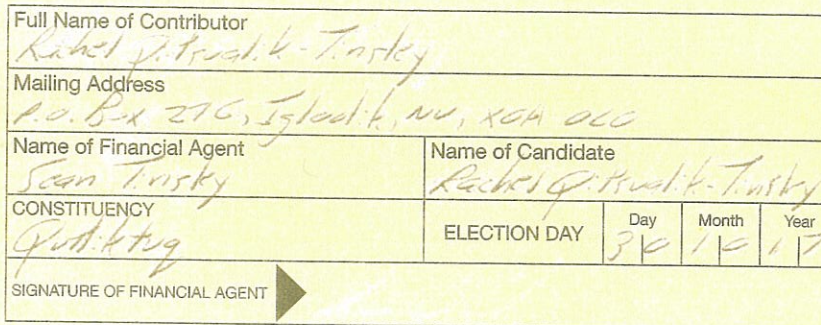 Full Name of Contributor
Rachel Qitsualik-Tinsley
Mailing Address
P.O. Box 276, Igloolik, NU, X0A 0L0
Name of Financial Agent
Sean Tinsley
Name of Candidate
Rachel Qitsualik-Tinsley
CONSTITUENCY
Quttiktuq
ELECTION DAY
Day Month Year
30 10 17
SIGNATURE OF FINANCIAL AGENT